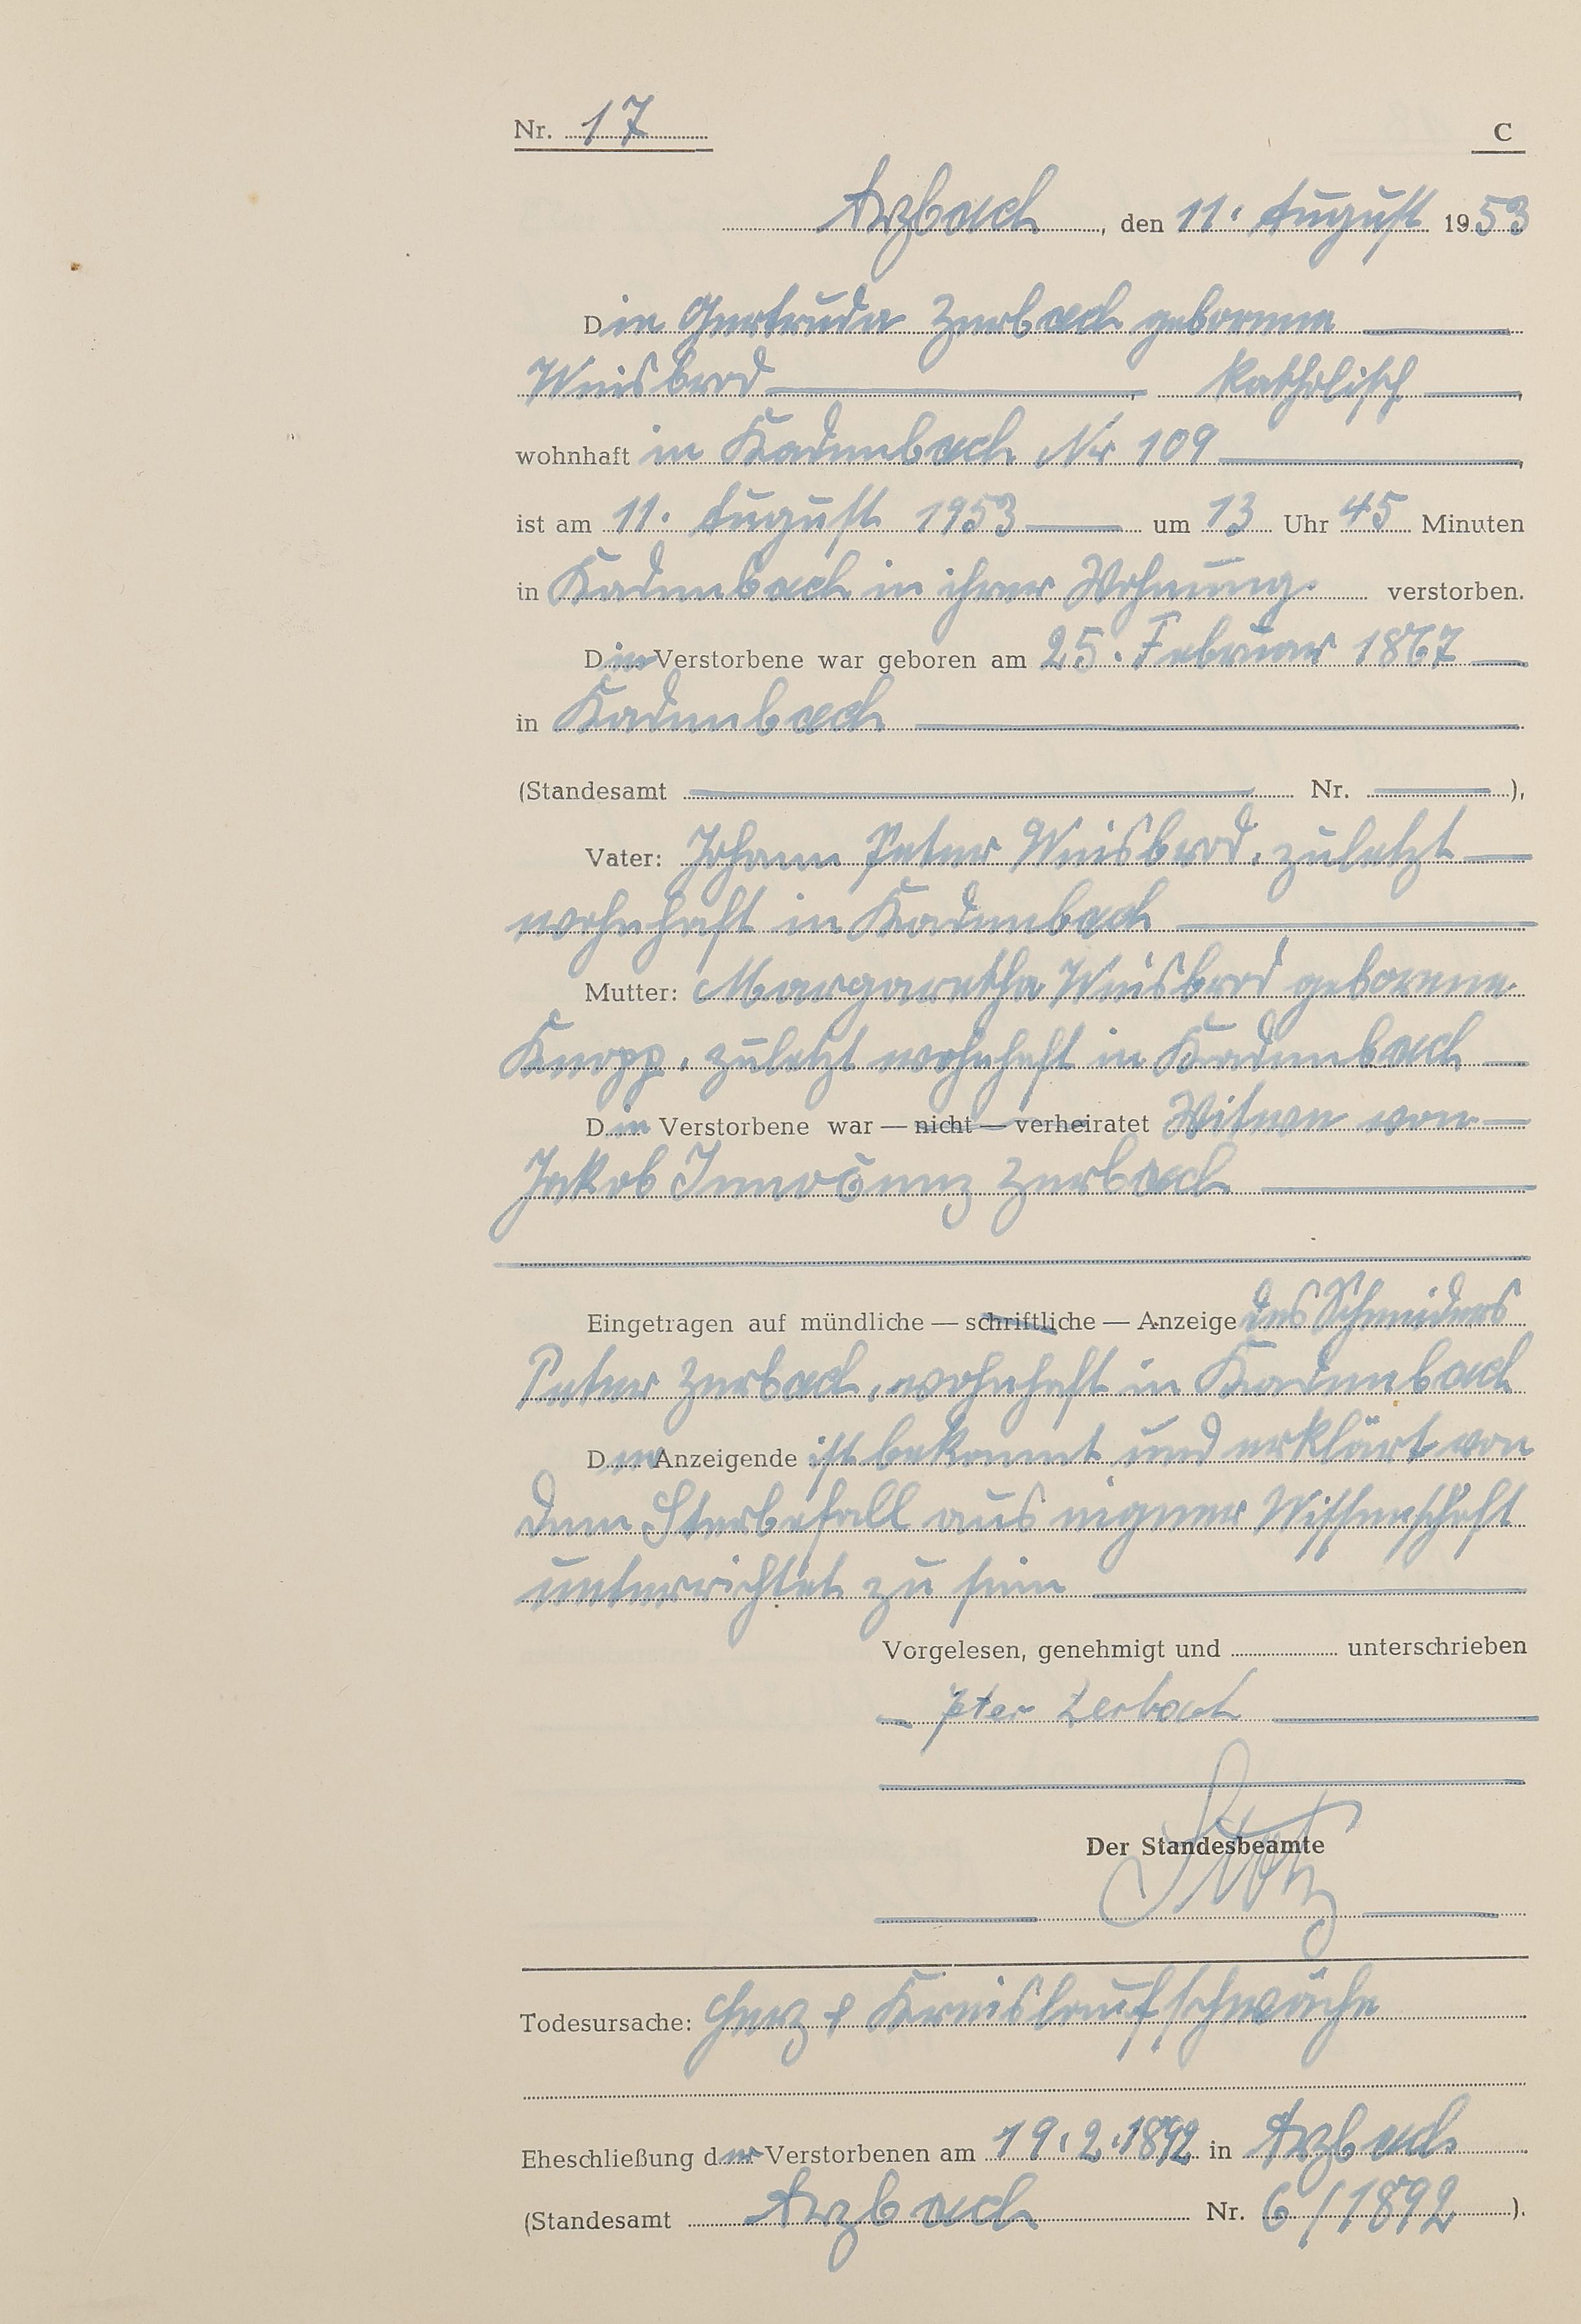 Nr. 17 C
Arzbach, den 11. August 1953
Die Gertruda Zerbach geborene
Weisbrod, katholisch,
wohnhaft in Kadenbach Nr 109,
ist am 11. August 1953 um 13 Uhr 45 Minuten
in Kadenbach in ihrer Wohnung. verstorben.
Die Verstorbene war geboren am 25. Februar 1867
in Kadenbach
(Standesamt Nr. ),
Vater: Johann Peter Weisbrod, zuletzt
wohnhaft in Kadenbach
Mutter: Margaretha Weisbrod geborene
Knopp, zuletzt wohnhaft in Kadenbach
Die Verstorbene war — nicht — verheiratet Witwe von
Jakob Innocenz Zerbach
Eingetragen auf mündliche — schriftliche — Anzeige des Schneiders
Peter Zerbach, wohnhaft in Kadenbach
Der Anzeigende ist bekannt und erklärt von
dem Sterbefall aus eigener Wissenschaft
unterrichtet zu sein
Vorgelesen, genehmigt und unterschrieben
Peter Zerbach
Der Standesbeamte
Todesursache: Herz & Kreislaufschwäche
Eheschließung der Verstorbenen am 19.2.1892 in Arzbach
(Standesamt Arzbach Nr. 6/1892).